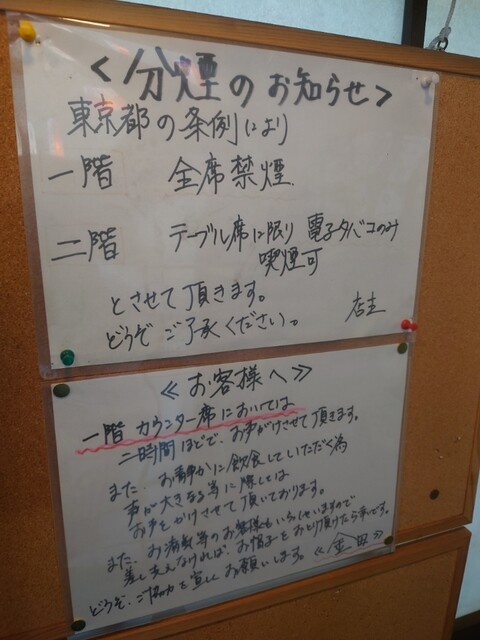 <分煙のお知らせ>
東京都の条例により
一階 全席禁煙
二階 テーブル席に限り 電子タバコのみ
喫煙可
とさせて頂きます。
どうぞ ご了承ください。 店主
≪お客様へ≫
一階 カウンター席においては
二時間ほどで、お声がけさせて頂きます。
また、お静かに飲食していただく為
声が大きくなる等に際しては
お声をかけさせて頂いております。
また、お満気等のお客様もいらっしゃいますので
差し支えなければ、お帽子をおとり頂けたら幸です。
どうぞ、ご協力を宜しくお願いします。